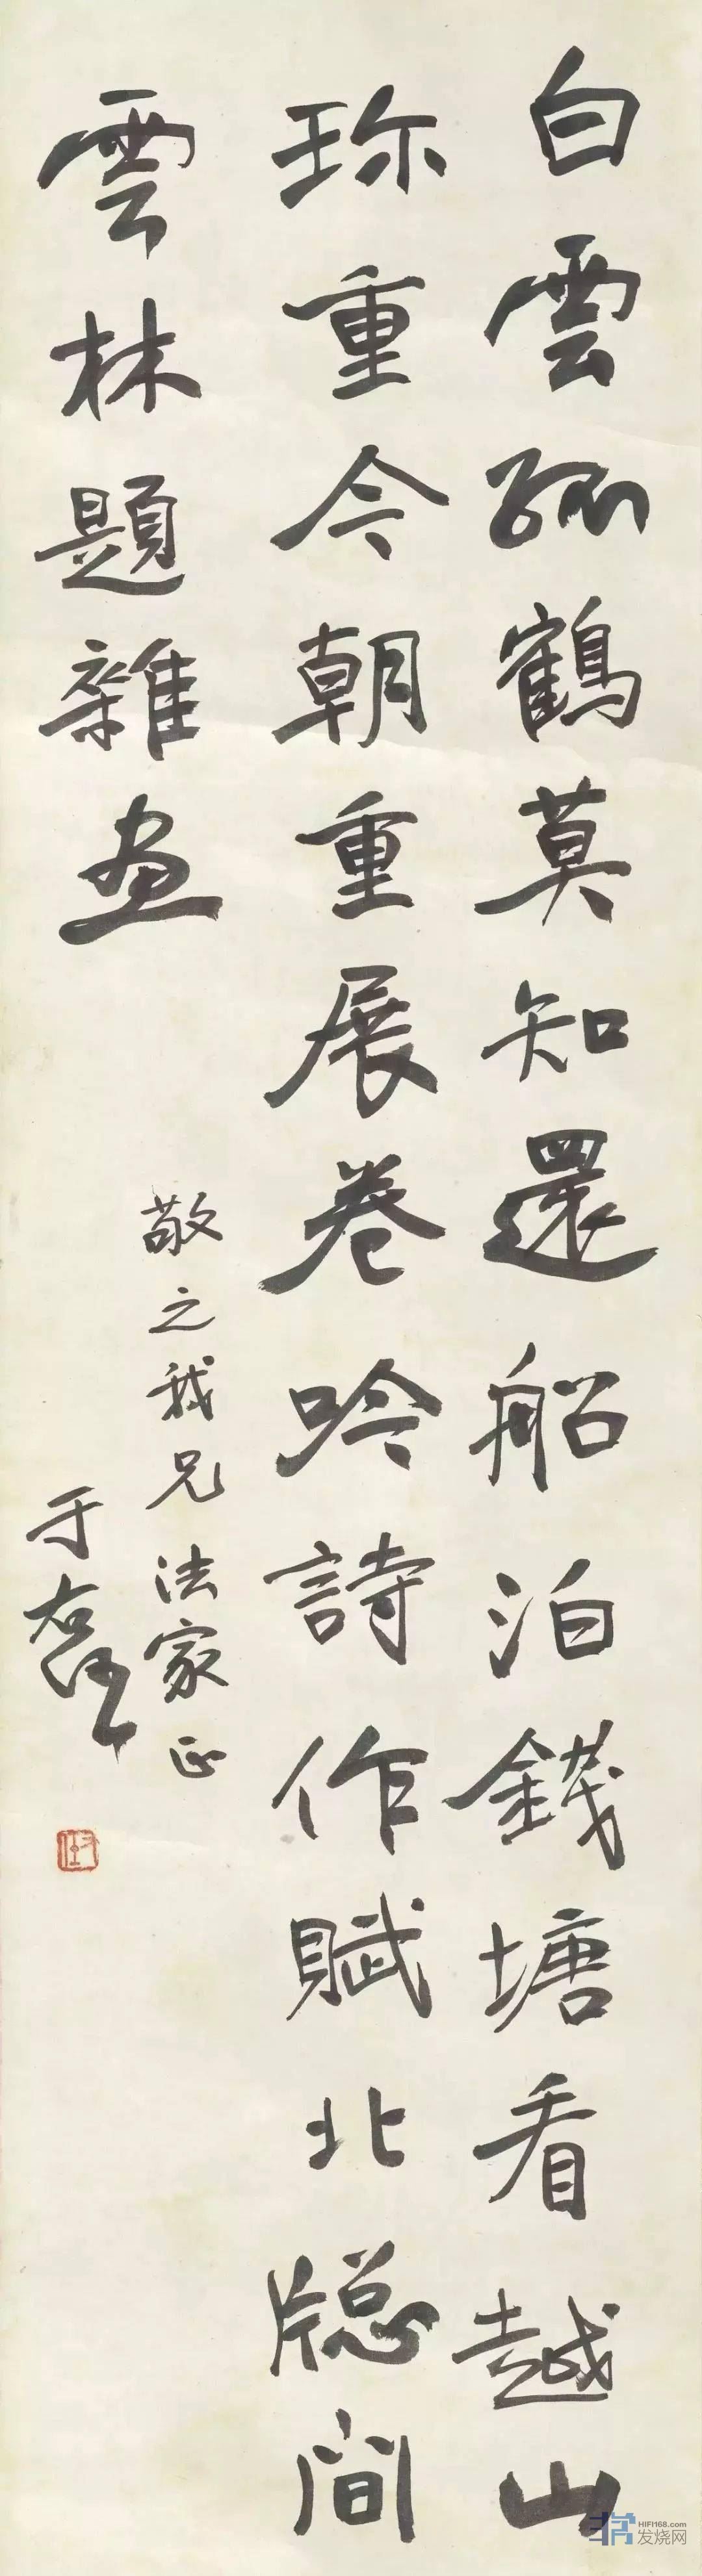 白雲孤鶴莫知還船泊錢塘看越山
珎重今朝重展卷吟詩作賦北牕間
雲林題雜画
敬之我兄法家正
于右任
HIFI168.com
发烧网